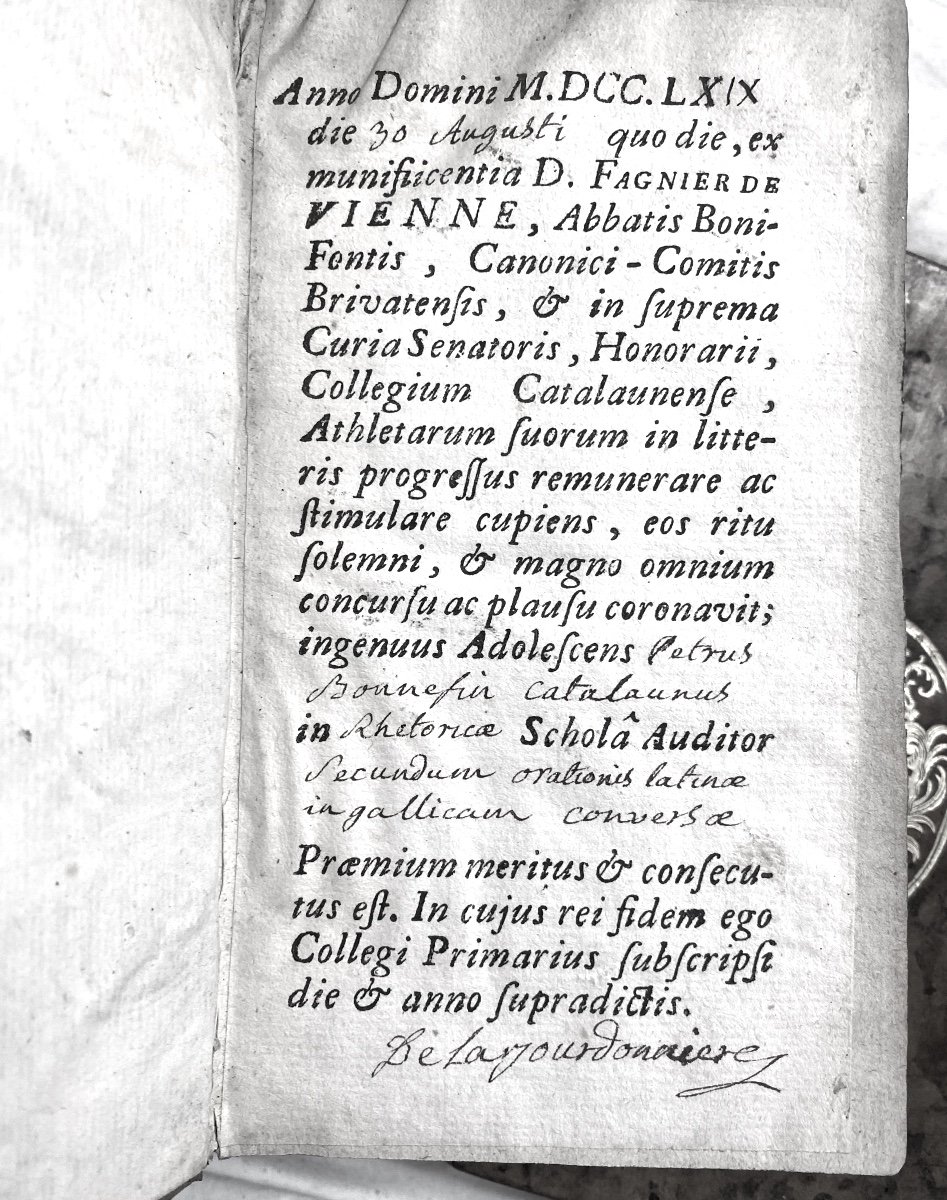 Anno Domini M.DCC.LXIX
die 30 Augusti quo die, ex
munifiicentia D. FAGNIER DE
VIENNE, Abbatis Boni-
Fontis, Canonici-Comitis
Brivatenſis, & in ſuprema
Curia Senatoris, Honorarii,
Collegium Catalaunenſe,
Athletarum ſuorum in litte-
ris progreſſus remunerare ac
ſtimulare cupiens, eos ritu
ſolemni, & magno omnium
concurſu ac plauſu coronavit;
ingenuus Adoleſcens Petrus
Bonnefin catalaunus
in Rhetoricæ Scholâ Auditor
Secundum orationis latinæ
in gallicam conversæ
Præmium meritus & conſecu-
tus eſt. In cujus rei fidem ego
Collegi Primarius ſubſcripſi
die & anno ſupradictis.